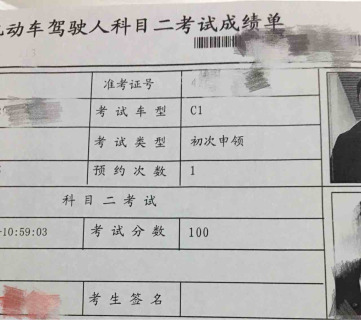 动车驾驶人科目二考试成绩单
准考证号
考试车型 C1
考试类型 初次申领
预约次数 1
科目二考试
10:59:03 考试分数 100
考生签名